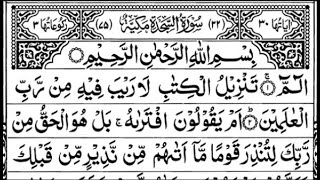 اٰیَاتُهَا ٣٠ (٣٢) سُوْرَةُ السَّجْدَةِ مَكِّيَّةٌ (٧٥) رُكُوْعَاتُهَا ٣
بِسْمِ اللّٰهِ الرَّحْمٰنِ الرَّحِيْمِ
الٓمّٓ ۚ تَنْزِيْلُ الْكِتٰبِ لَا رَيْبَ فِيْهِ مِنْ رَّبِّ
الْعٰلَمِيْنَ ؕ اَمْ يَقُوْلُوْنَ افْتَرٰىهُ ۚ بَلْ هُوَ الْحَقُّ مِنْ
رَّبِّكَ لِتُنْذِرَ قَوْمًا مَّاۤ اَتٰىهُمْ مِّنْ نَّذِيْرٍ مِّنْ قَبْلِكَ